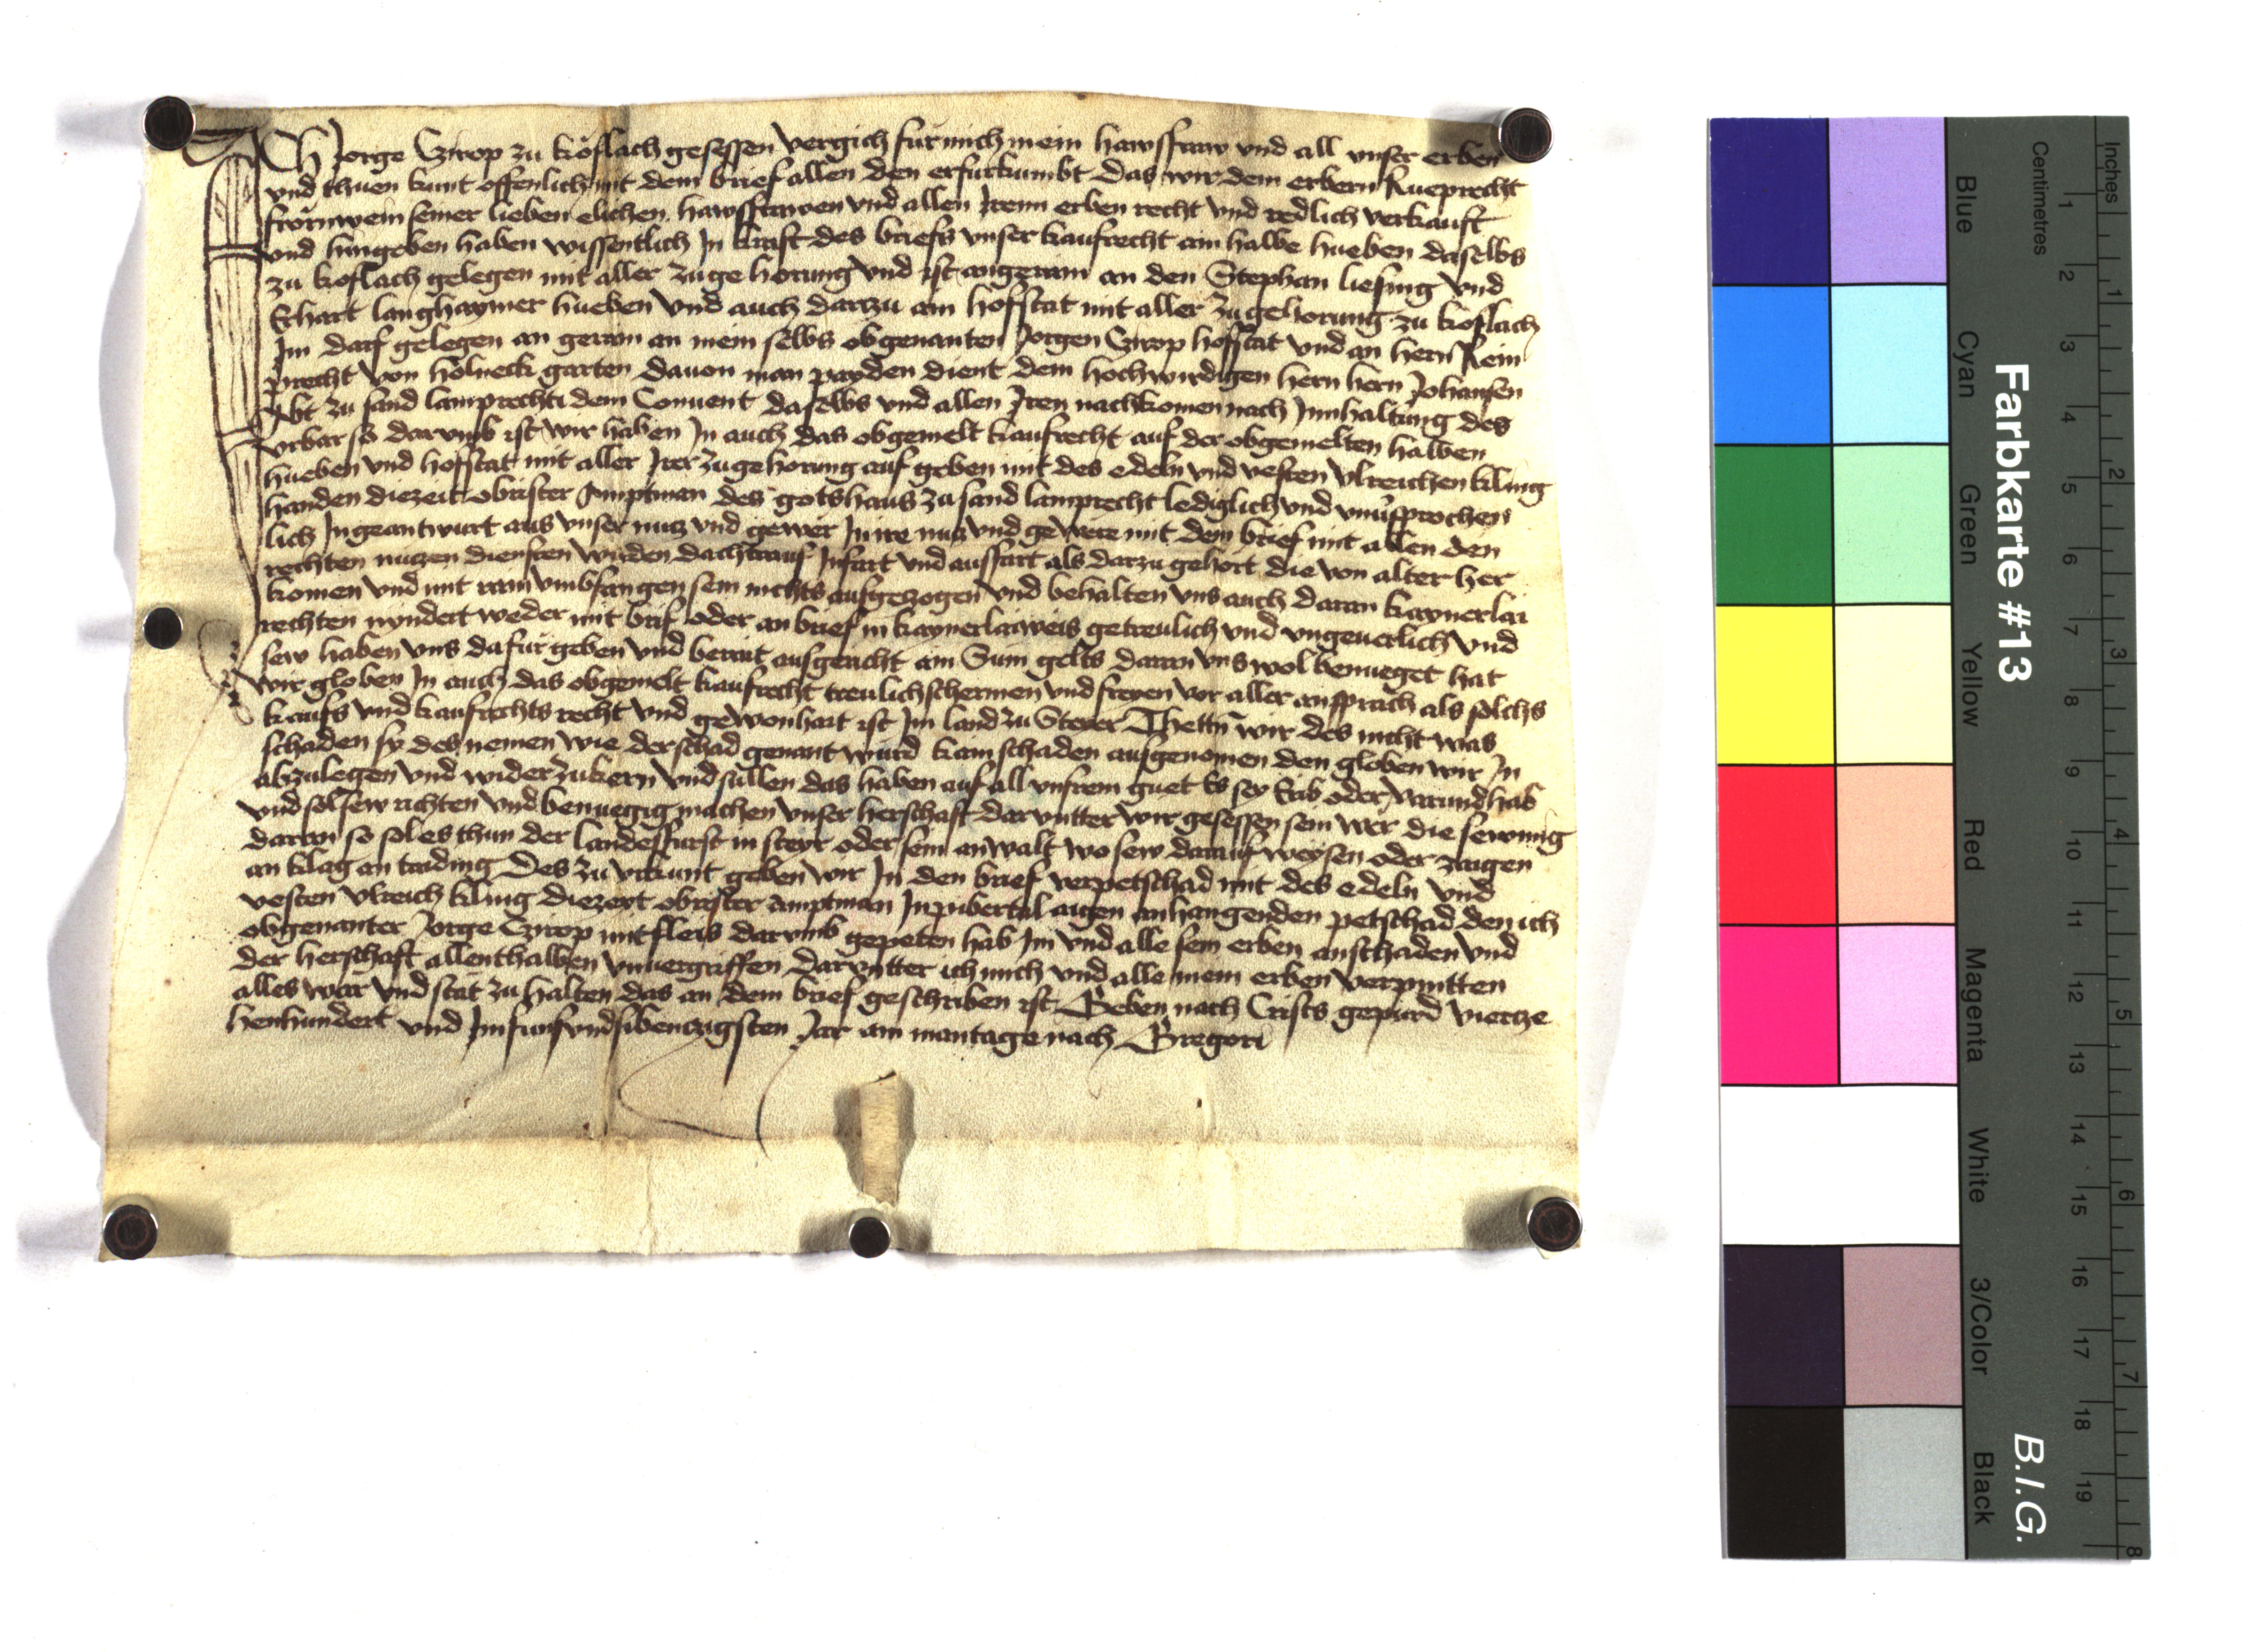 Ich Jorge Czirop zu koflach gesessen vergich fur mich mein hawsfraw vnd all vnser erben
vnd thuen kunt offenlich mit dem brief allen den er furkumbt das wir dem erbern Rueprecht
frörnwein seiner lieben elichen hawsfrawen vnd allen Iren erben recht vnd redlich verkauft
vnd hingeben haben wissentlich In kraft des briefs vnser kaufrecht ain halbe hueben daselbs
zu koflach gelegen mit aller zuge horung vnd ist angerain an den Stephan liesing vnd
Erhart langhaymer hueben vnd auch darzu ain hofstat mit aller zu gehorung zu koflach
Im darf gelegen an gerain an mein selbs obgenanten Jorgen Czirop hofstat vnd an hern Rein
precht von holneck garten dauon man payden dient dem hochwirdigen hern hern Johansen
Abt zu sand lamprecht dem Conuent daselbs vnd allen Iren nachkomen nach Innhaltung des
vrbar so darumb ist wir haben In auch das obgemelt kaufrecht auf der obgemelten halben
hueben vnd hofstat mit aller Irer zugehorung auf geben mit des edeln vnd vesten vlreichen kling
handen diezeit obrister Amptman des gotshaus zu sand lamprecht lediglich vnd vnuersprochen
lich Ingeantwurt aus vnser nucz vnd gewer In ire nucz vnd gewere mit dem brief mit allen den
rechten nuczen diensten wirden dachtrauf Infart vnd ausfart als darzu gehort die von alter her
komen vnd mit rain vmbfangen sein nichts ausgezogen vnd behalten vns auch daran kaynerlai
rechten nyndert weder mit brif oder an brief in kaynerlaiweis getreulich vnd vngeuerlich vnd
sew haben vns dafur geben vnd berait ausgericht ain Sum gelts daran vns wol benueget hat
wir globen In auch das obgemelt kaufrecht treulich schermen vnd freyen vor aller ansprach als solchs
kaufs vnd kaufrechts recht vnd gewonhait ist Im land zu Steyer Thetten wir des nicht was
schaden sy des nemen wie der schad genant wurd kain schaden ausgenomen den globen wir In
abzulegen vnd wider zukern vnd sullen das haben auf all vnsrem guet Es sey Erib oder varund hab
vnd sol sew richten vnd benuegig machen vnser herschaft darunter wir gesessen sein wer die sewnig
daran so sol es thun der landesfurst in steyr oder sein anwalt wo sew darauf weysen oder zaigen
an klag an taiding Des zu vrkunt geben wir In den brief verpetschad mit des edeln vnd
vesten vlreich kling diezeyt obrister amptman In piberstal aigen anhangenden petschad den ich
obgenanter Jorge Czirop mit fleis darumb gepeten hab Im vnd alle sein erben an schaden vnd
der herschaft allenthalben vnuergriffen darunter ich mich vnd alle mein erben verpintten
alles war vnd stät zu halten das an dem brief geschriben ist Geben nach Crists gepurd vierze
henhundert vnd Im funfvndsibenczigsten Jar am mantage nach Gregori
Farbkarte #13
B.I.G.
Centimetres
Inches
Blue
Cyan
Green
Yellow
Red
Magenta
White
3/Color
Black
1 2 3 4 5 6 7 8 9 10 11 12 13 14 15 16 17 18 19
1 2 3 4 5 6 7 8